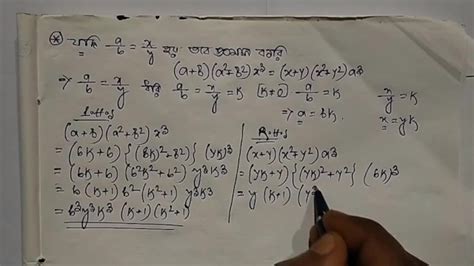 ⊛ যদি a/b = x/y হয়, তবে প্রমাণ করি
(a+b)(a²+b²)x³ = (x+y)(x²+y²)a³
⇒ a/b = x/y ধরি a/b = x/y = K [K≠0] a/b = K x/y = K
⇒ a = bK x = yK
L.H.S
(a+b)(a²+b²)x³
= (bK+b){(bK)²+b²}(yK)³
= b(K+b)(b²K²+b²) y³K³
= b(K+1) b²(K²+1) y³K³
= b³y³K³(K+1)(K²+1)
R.H.S
(x+y)(x²+y²)a³
= (yK+y){(yK)²+y²}(bK)³
= y(K+1)(y²